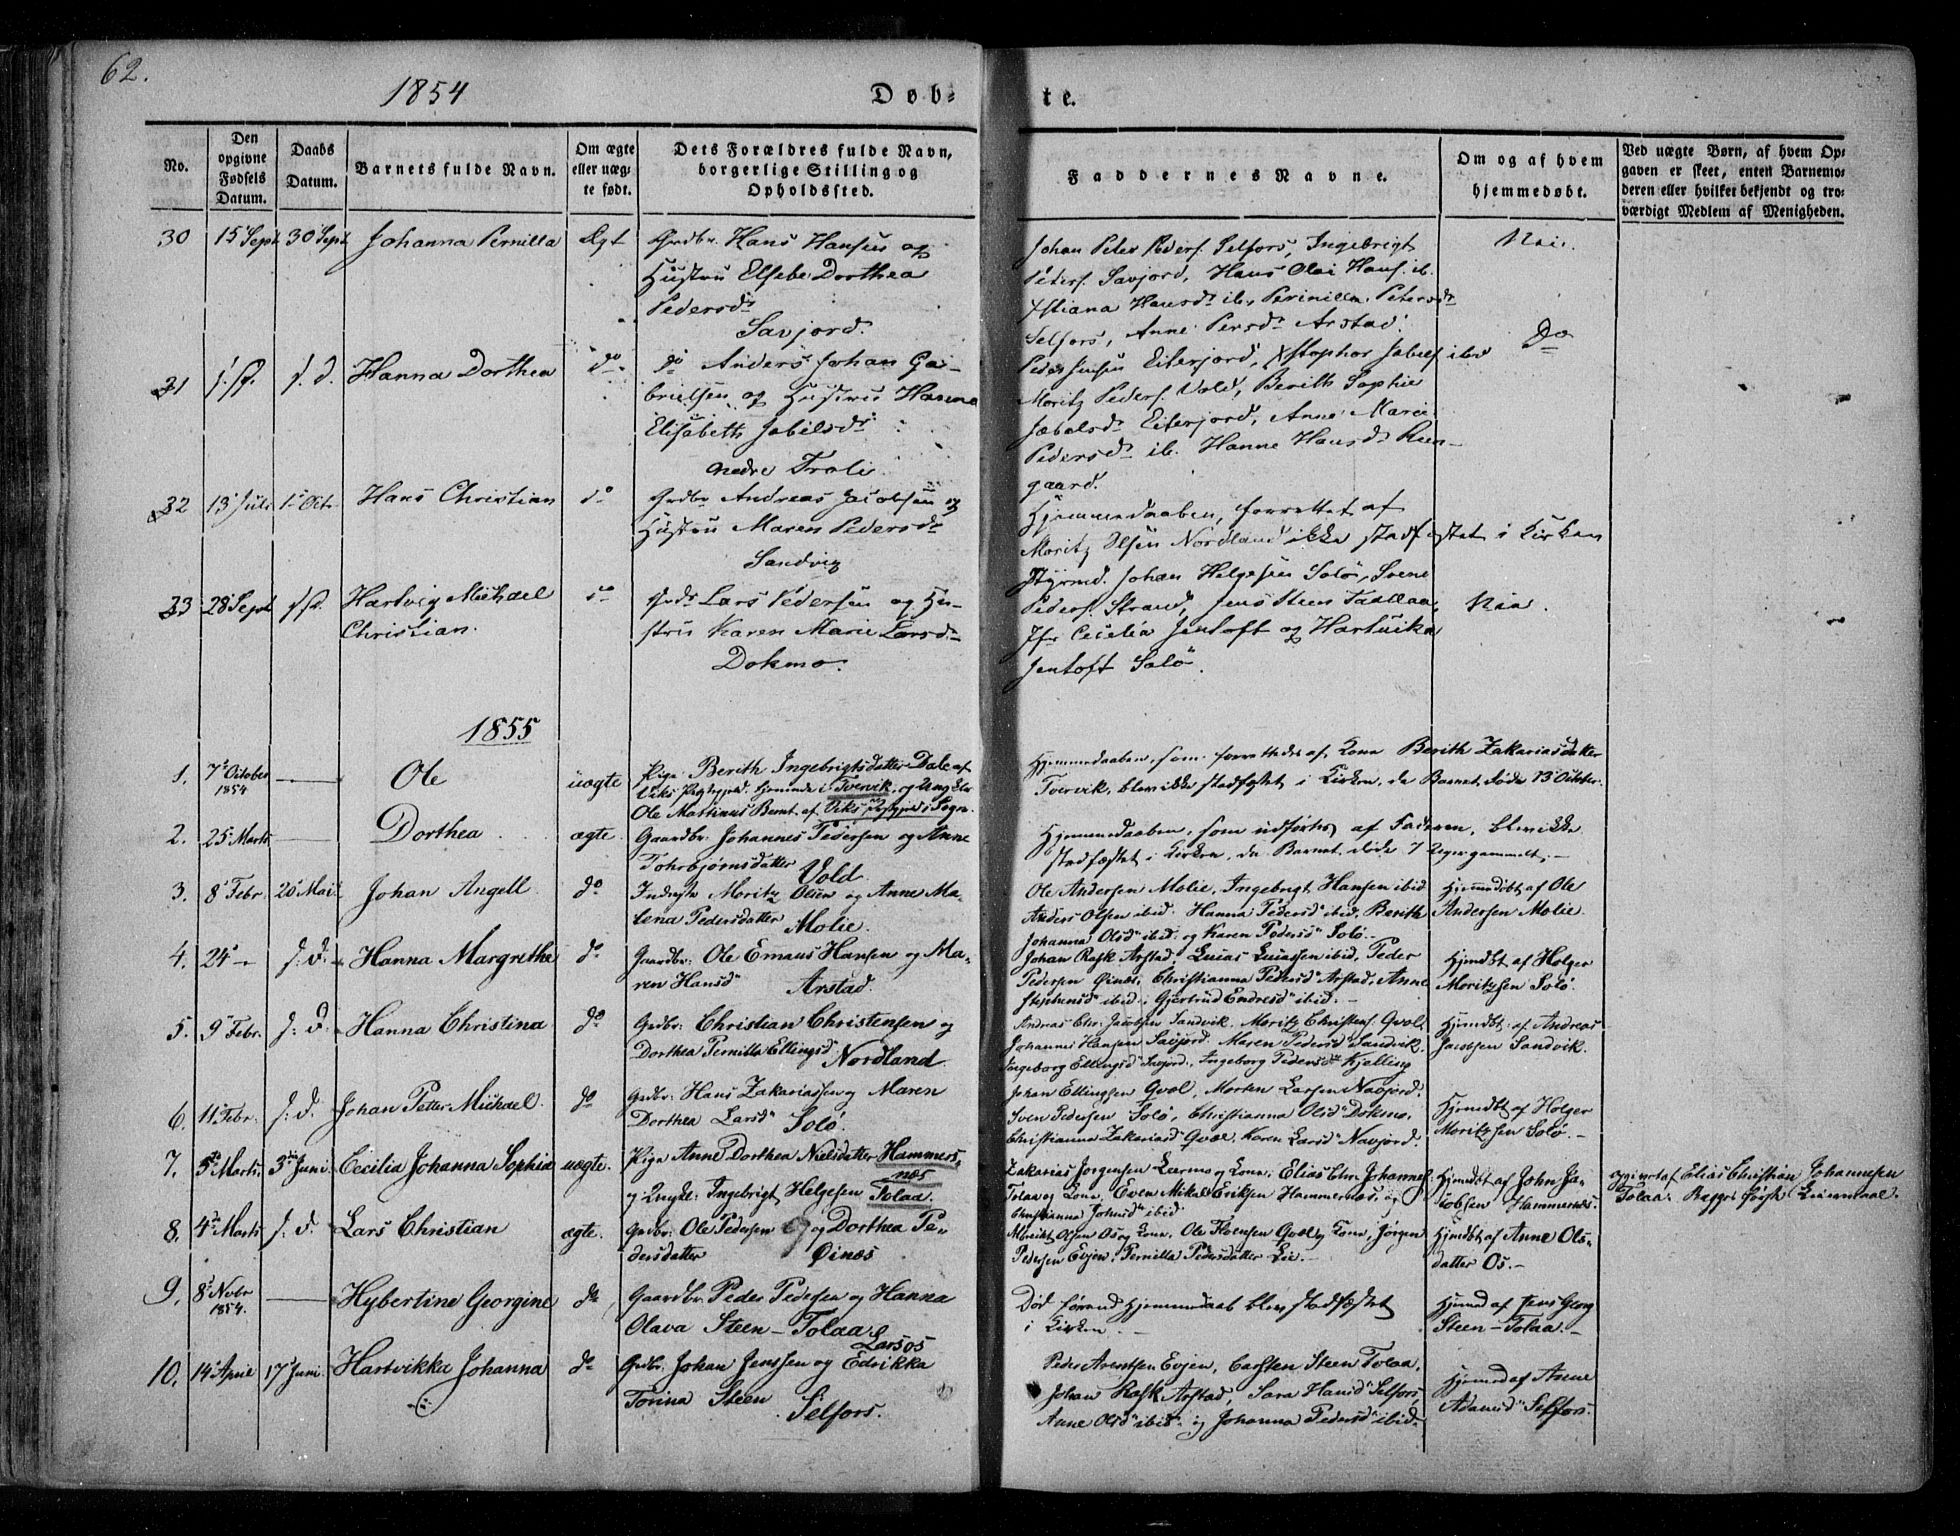 62.
1854
Døb-
te.
No.
Den opgivne Fødsels Datum.
Daabs Datum.
Barnets fulde Navn.
Om ægte eller uægte født.
Dets Forældres fulde Navn, borgerlige Stilling og Opholdssted.
Faddernes Navne.
Om og af hvem hjemmedøbt.
Ved uægte Børn, af hvem Opgaven er skeet, enten Barnemoderen eller hvilket bekjendt og troværdigt Medlem af Menigheden.
30 15 Sept 30 Sept Johanna Pernilla Ægt Grdbr. Hans Hansen og
Hustru Elsebe Dorthea
Pedersd
Savjord.
Johan Peter Peders. Selfors, Ingebrigt
Peters. Savjord, Hans Olai Hans. ib.
Xstiana Hansd ib, Perinilla Petersd
Selfors, Anne Persd Arstad.
Nei.
31 s. d. Hanna Dorthea do do Anders Johan Ga-
brielsen og Hustru Hanna
Elisabeth Jabelsd
nedre Troli
Peder Jensen Eiterjord, Xstophor Jabels ibid
Moritz Peders. Vold, Berith Sophie
Jæbelsd Eiterjord, Anne Marie
Pedersd ib. Hanne Hansd Reen-
gaard.
Do
32 13 Juli 1 Oct Hans Christian do Grdbr Andreas Jacobsen og
Hustru Maren Pedersd
Sandvig
Hjemmedaaben, forrettet af
Moritz Olsen Nordland ikke stadfæstet i Kirken
33 28 Sept s. d. Hartvig Michael
Christian.
do Grdb Lars Pedersen og Hu-
stru Karen Marie Larsd
Dokmo.
Styrmd. Johan Helgesen Solø, Svene
Peders. Strand, Jens Steen Taallaa,
Jfr Cecilia Jentoft og Hartvika
Jentoft Solø.
Nei.
1855
1. 7 October
1854
Ole uægte Pige Berith Ingebrigtsdatter Dale af
Viks Præstegjeld, hjemme i Tvervik, og Ungkar
Ole Martinus Bernt. af Viks Præstegjeld i Sogn.
Hjemmedaaben, som forrettedes af Kona Berith Zakariasdatter
Tvervik, blev ikke stadfæstet i Kirken, da Barnet døde 13 Oktbr.
2. 25 Marts Dorthea ægte Gaardbr Johannes Pedersen og Anne
Tohrbjørnsdatter Vold
Hjemmedaaben, som udførtes af Faderen, blev ikke
stadfæstet i Kirken, da Barnet døde 7 Uger gammelt.
3. 8 Febr. 20 Mai Johan Angell do Inderste Moritz Olsen og Anne Ma-
lena Pedersdatter Molie.
Ole Andersen Molie, Ingebrigt Hansen ibid
Anders Olsen ibid. Hanna Pedersd ibid, Berith
Johanna Olsd ibid. og Karen Pedersd Solø.
Hjemdøbt af Ole
Andersen Molie.
4. 24 s: d. Hanna Margrethe do Gaardbr: Ole Emaus Hansen og Ma-
ren Hansd Arstad.
Johan Rask Arstad, Luias Luiassen ibid, Peder
Pedersen Øines, Christianna Pedersd Arstad, Anne
Stephensd ibid, Gjertrud Endresd ibid.
Hjemdbt af Holger
Moritzsen Solø.
5. 9 Febr. s: d. Hanna Christina do Grdbr: Christian Christensen og
Dorthea Pernilla Ellingsd Nordland
Andreas Chr. Jacobsen Sandvik, Moritz Christens. Qvol,
Johannes Hansen Savjord. Maren Pedersd Sandvik.
Ingeborg Ellingsd Savjord, Ingeborg Pedersd Kjelling
Hjemdbt: af Andreas
Jacobsen Sandvik.
6. 11 Febr. s: d. Johan Petter Michael. do Grdbr: Hans Zakariassen og Maren
Dorthea Larsd Solø.
Johan Ellingsen Qvol, Morten Larsen Navjord.
Sven Pedersen Solø, Christianna Olsd Dokmo,
Christianna Zakariasd Qvæl, Karen Larsd Navjord.
Hjemdbt af Holger
Moritzsen Solø.
7. 5 Marts. 3 Juni Cecilia Johanna Sophia uægte. Pige Anne Dorthea Nielsdatter Hammers-
næs
og Ungke: Ingebrigt Helgesen Tolaa.
Zakarias Jørgensen Leermo og Kone, Elias Chr. Johannes.
Tolaa og Kone, Even Mikal Eriksen Hammernæs, og
Christianna Johnsd ibid
Hjemdbt af John Ja-
cobsen Hammernæs.
opgivet af Elias Christian Johannesen
Tolaa.
8. 4 Marts s: d. Lars Christian ægte. Grdbr: Ole Pedersen og Dorthea Pe-
dersdatter Øines
Albrikt Olsen Os og Kone, Ole Evensen Qvol og Kone, Jørgen
Pedersen Evjen, Pernilla Pedersdatter Lie.
Hjemdbt af Anne Ols-
datter Os.
9. 8 Novbr
1854.
Hybertine Georgine do Gaardbr Peder Pedersen og Hanna
Olava Steen Tolaa
Død førend Hjemmedaab blev stadfæstet
i Kirken.
Hjemd af Jens Georg
Steen Tolaa.
10. 14 April 17 Juni Hartvikka Johanna do Grdbr. Johan Jenssen og Edvikka
Larsos
Torina Steen Selfors.
Peder Arentsen Evjen, Carsten Steen Tolaa,
Johan Rask Arstad, Sara Hansd Selfors,
Anne Olsd ibid. og Johanna Pedersd ibid
Hjemd af Anne
Adamsd Selfors.